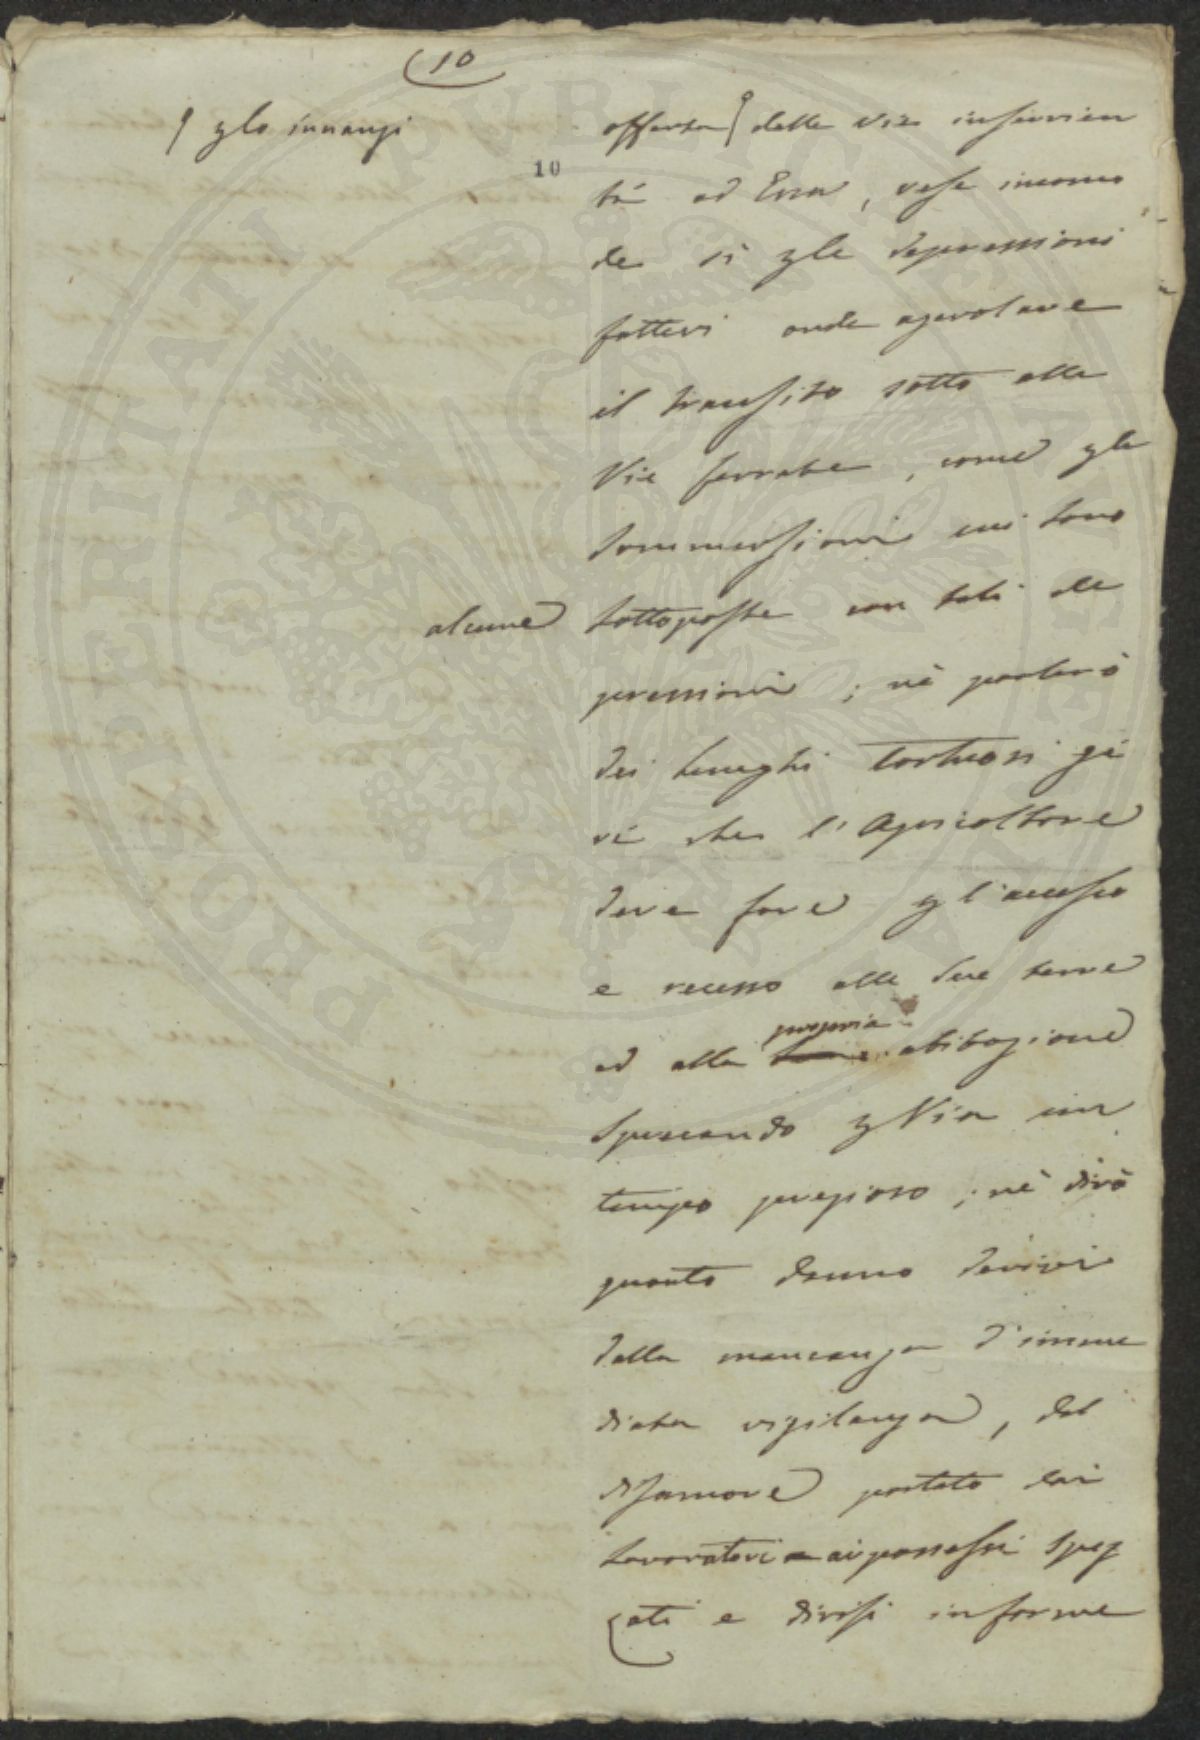 10
10
ꝑ lo innanzi
offerta delle vie inservien
ti ad Essa, rese incomo
de sì ꝑ le depressioni
fattevi onde agevolare
il transito sotto alle
Vie ferrate, come ꝑ le
sommersioni cui sono
alcune
sottoposte con tali de
pressioni; nè parlerò
dei lunghi tortuosi gi
ri che l'Agricoltore
deve fare ꝑ l'accesso
e recesso alle sue terre
propria
ed alla abitazione
sprecando ꝑ Via un
tempo prezioso; nè dirò
quanto danno derivi
dalla mancanza d'imme
diata vigilanza, del
disamore portato dai
lavoratori ai possessi spez
zati e divisi in forme
PROSPERITATI PVBLICAE